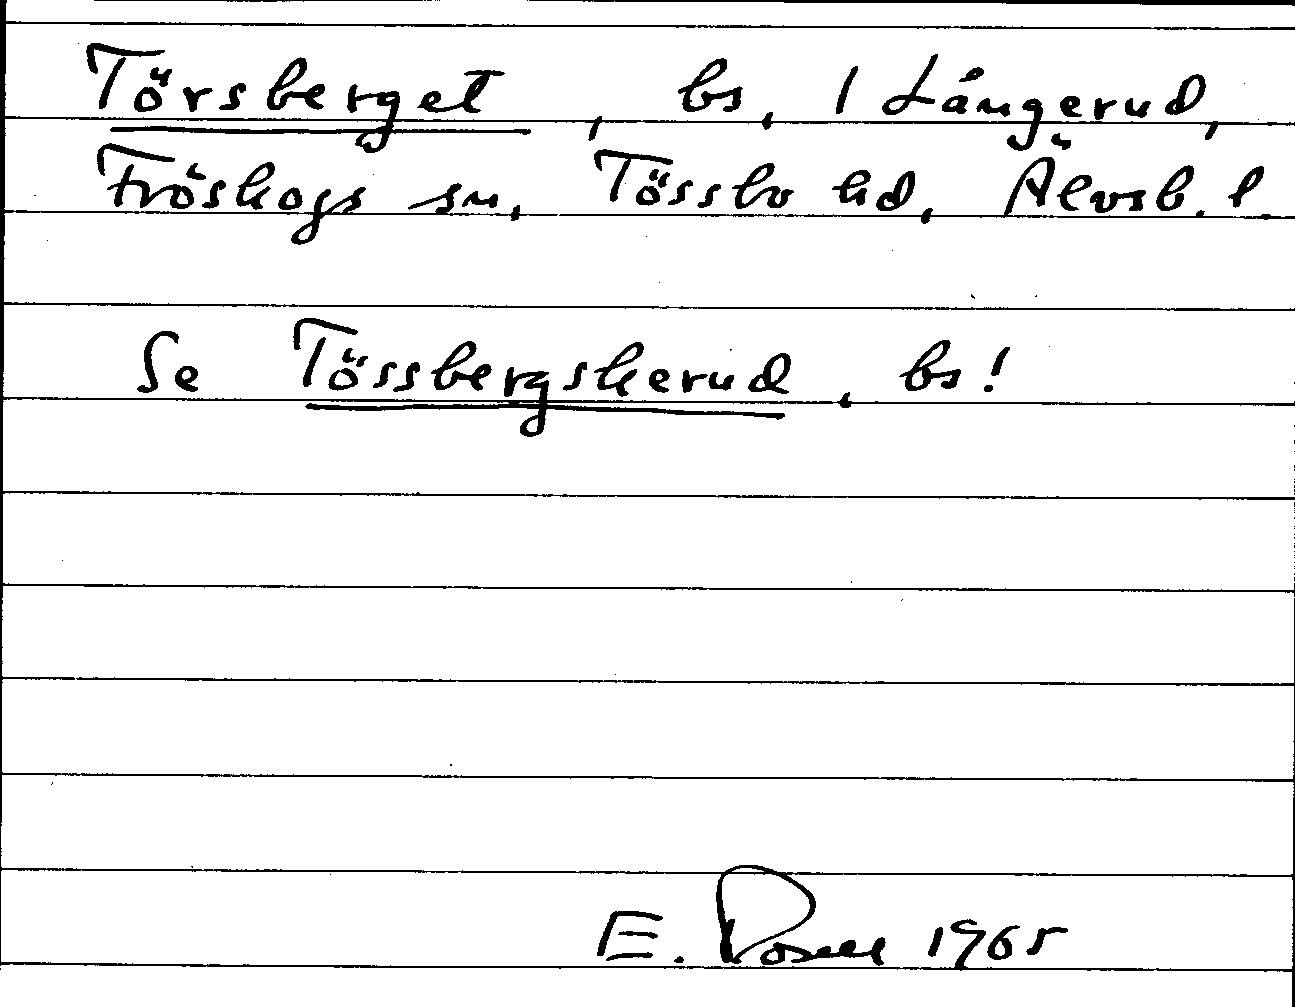 Törsberget, bs, 1 Långerud,
Fröskogs sn, Tössbo hd, Älvsb. l.
Se Tössbergskerud, bs!
E. Rosell 1965